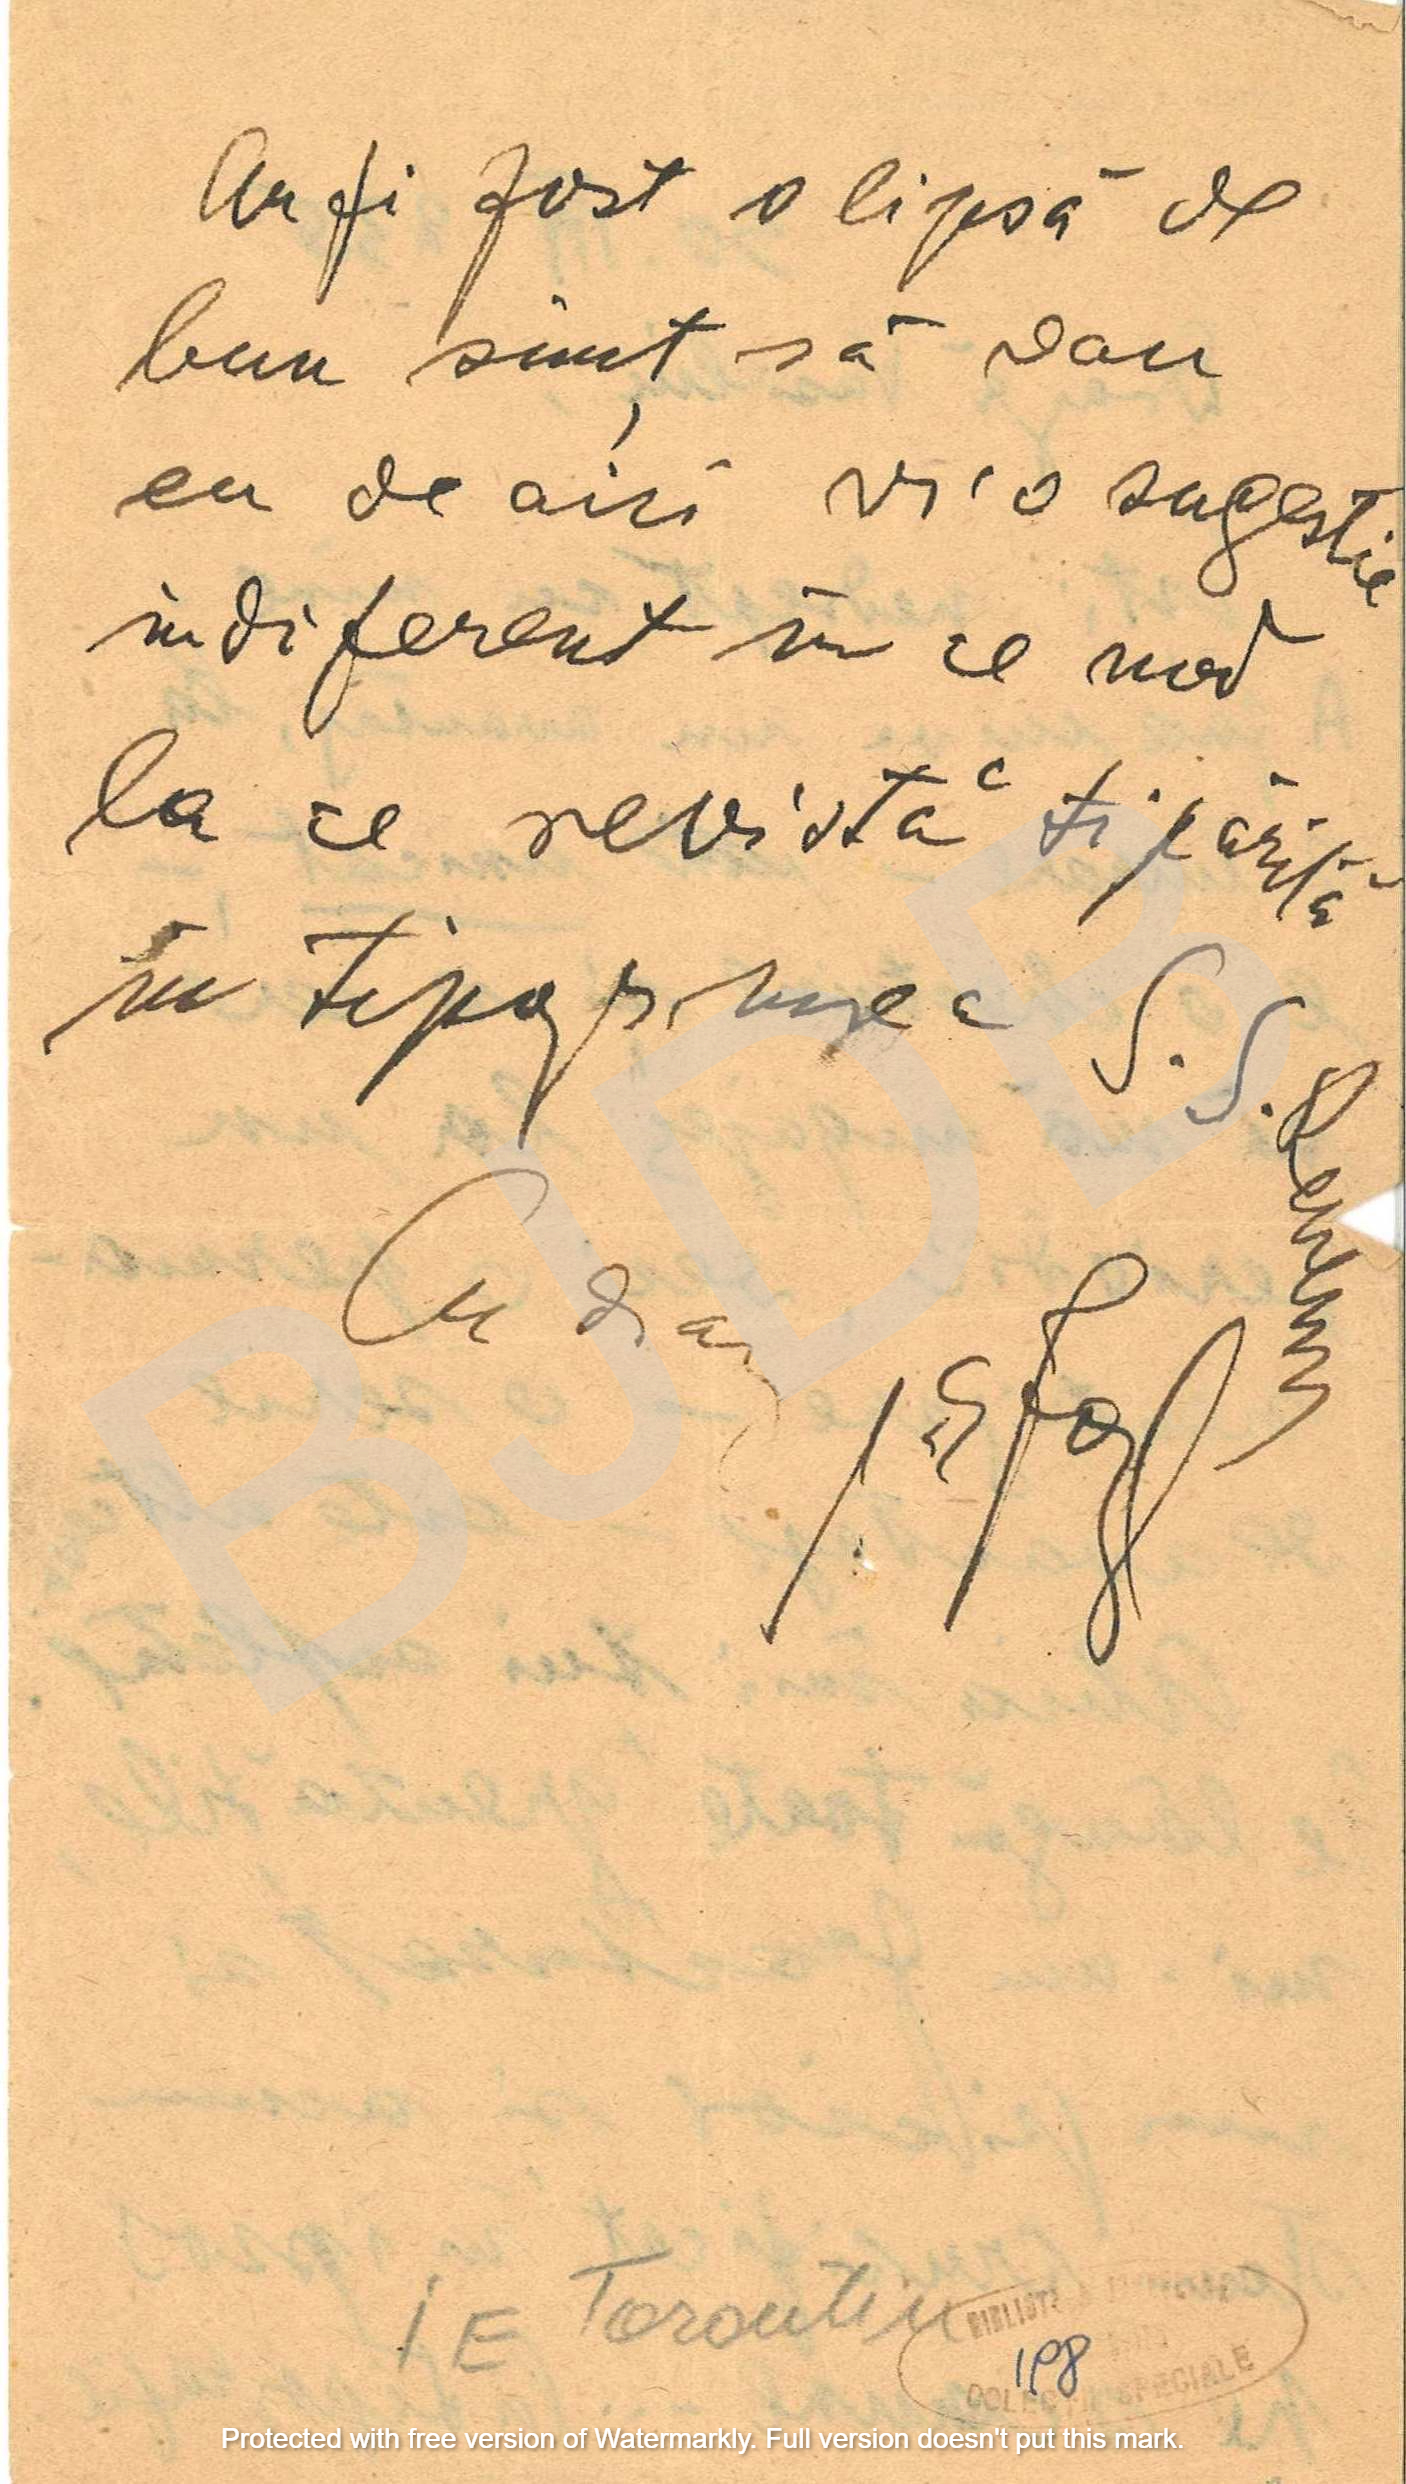 Ar fi fost o lipsă de
bun simț să dau
eu de aici vr'o sugestie
indiferent în ce mod
la ce revistă tipărită
în tipogr. mea S. S.
Cu drag
I E Toroutiu
BIBLIOTECA
198
COLECȚII SPECIALE
BJDB
Protected with free version of Watermarkly. Full version doesn't put this mark.